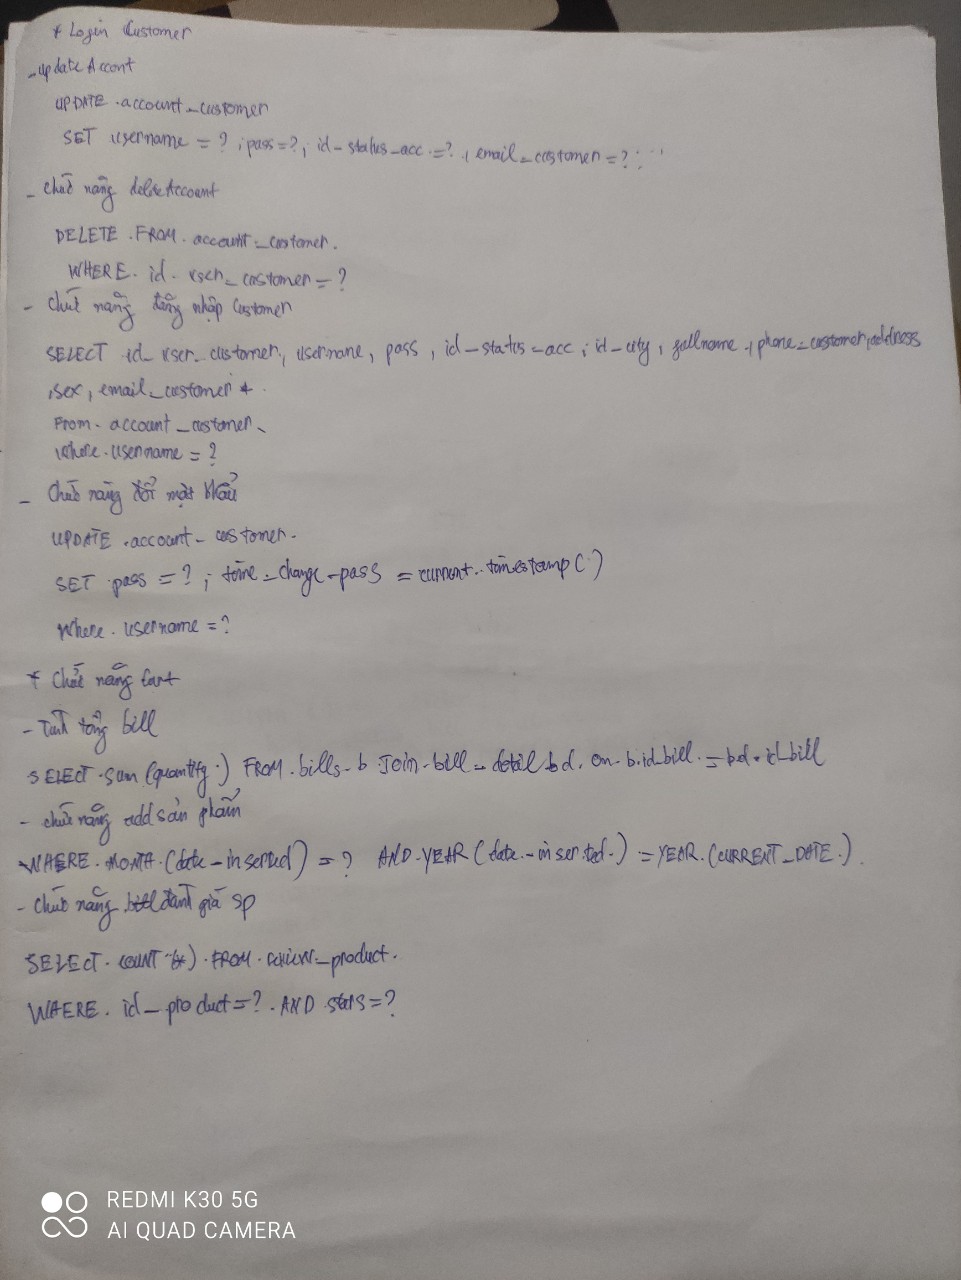 * Login Customer
- update Accont
UPDATE account_customer
SET username = ?, pass=?, id_status_acc=?, email_customer=?, ...
- chức năng delete Account
DELETE FROM account_customer.
WHERE id_user_customer=?
- Chức năng đăng nhập Customer
SELECT id_user_customer, username, pass, id_status_acc, id_city, fullname, phone_customer, address
, sex, email_customer *
From account_customer
Where username = ?
- Chức năng đổi mật khẩu
UPDATE account_customer.
SET pass = ?, time_change_pass = current_timestamp()
Where username = ?
* Chức năng Cart
- Tính tổng bill
SELECT sum(quantity) FROM bills b Join bill_detail bd on b.id_bill = bd.id_bill
- chức năng add sản phẩm
WHERE MONTH(date_inserted) = ? AND YEAR(date_inserted) = YEAR(CURRENT_DATE).
- Chức năng đánh giá sp
SELECT COUNT(*) FROM review_product.
WHERE id_product=? AND stars=?
REDMI K30 5G
AI QUAD CAMERA